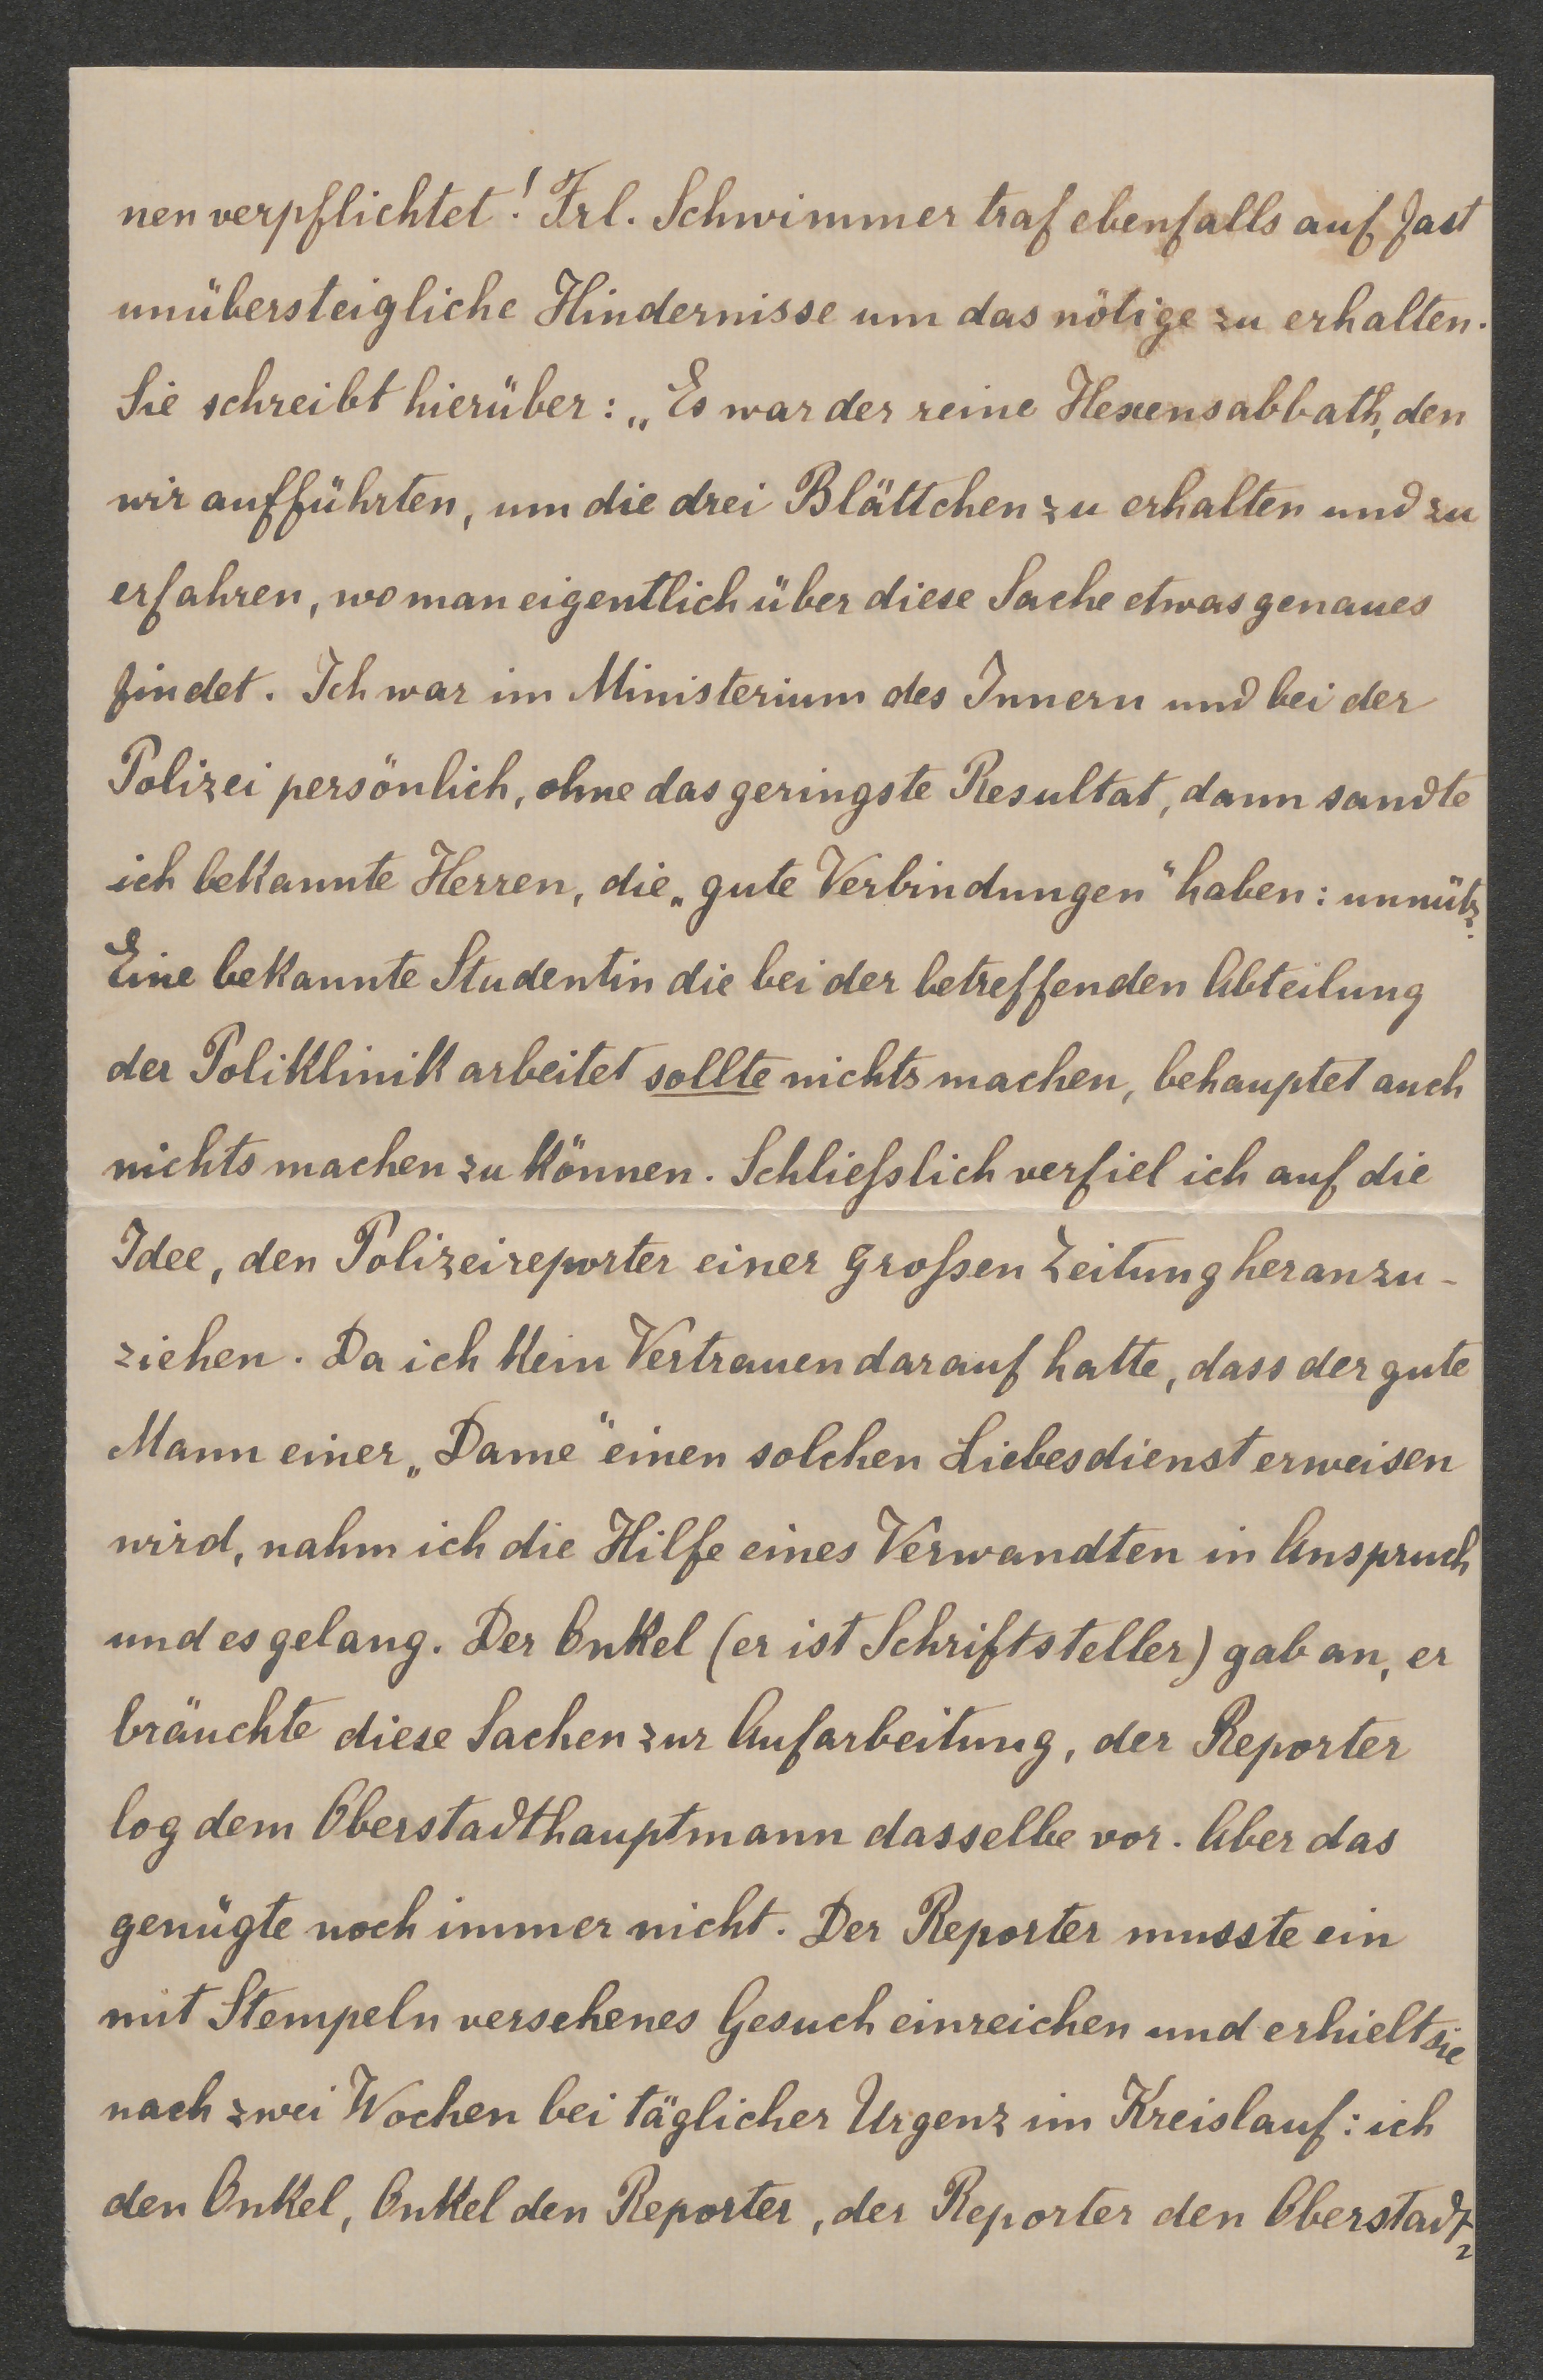 nen verpflichtet! Frl. Schwimmer traf ebenfalls auf fast
unübersteigliche Hindernisse um das nötige zu erhalten.
Sie schreibt hierüber: „Es war der reine Hexensabbath, den
wir aufführten, um die drei Blättchen zu erhalten und zu
erfahren, wo man eigentlich über diese Sache etwas genaues
findet. Ich war im Ministerium des Innern und bei der
Polizei persönlich, ohne das geringste Resultat, dann sandte
ich bekannte Herren, die „gute Verbindungen“ haben: unnütz.
Eine bekannte Studentin die bei der betreffenden Abteilung
der Poliklinik arbeitet sollte nichts machen, behauptet auch
nichts machen zu können. Schliefslich verfiel ich auf die
Idee, den Polizeireporter einer grofsen Zeitung heranzu-
ziehen. Da ich kein Vertrauen darauf hatte, dass der gute
Mann einer „Dame“ einen solchen Liebesdienst erweisen
wird, nahm ich die Hilfe eines Verwandten in Anspruch
und es gelang. Der Onkel (er ist Schriftsteller) gab an, er
bräuchte diese Sachen zur Aufarbeitung, der Reporter
log dem Oberstadthauptmann dasselbe vor. Aber das
genügte noch immer nicht. Der Reporter musste ein
mit Stempeln versehenes Gesuch einreichen und erhielt sie
nach zwei Wochen bei täglicher Urgenz im Kreislauf: ich
den Onkel, Onkel den Reporter, der Reporter den Oberstadt=